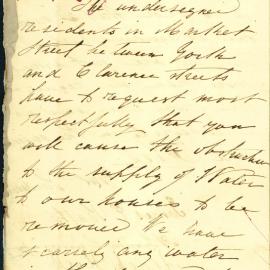 The undersigned
residents in Market
Street between York
and Clarence streets
have to request most
respectfully that you
will cause the obstruction
to the supply of Water
to our houses to be
removed We have
scarcely any water